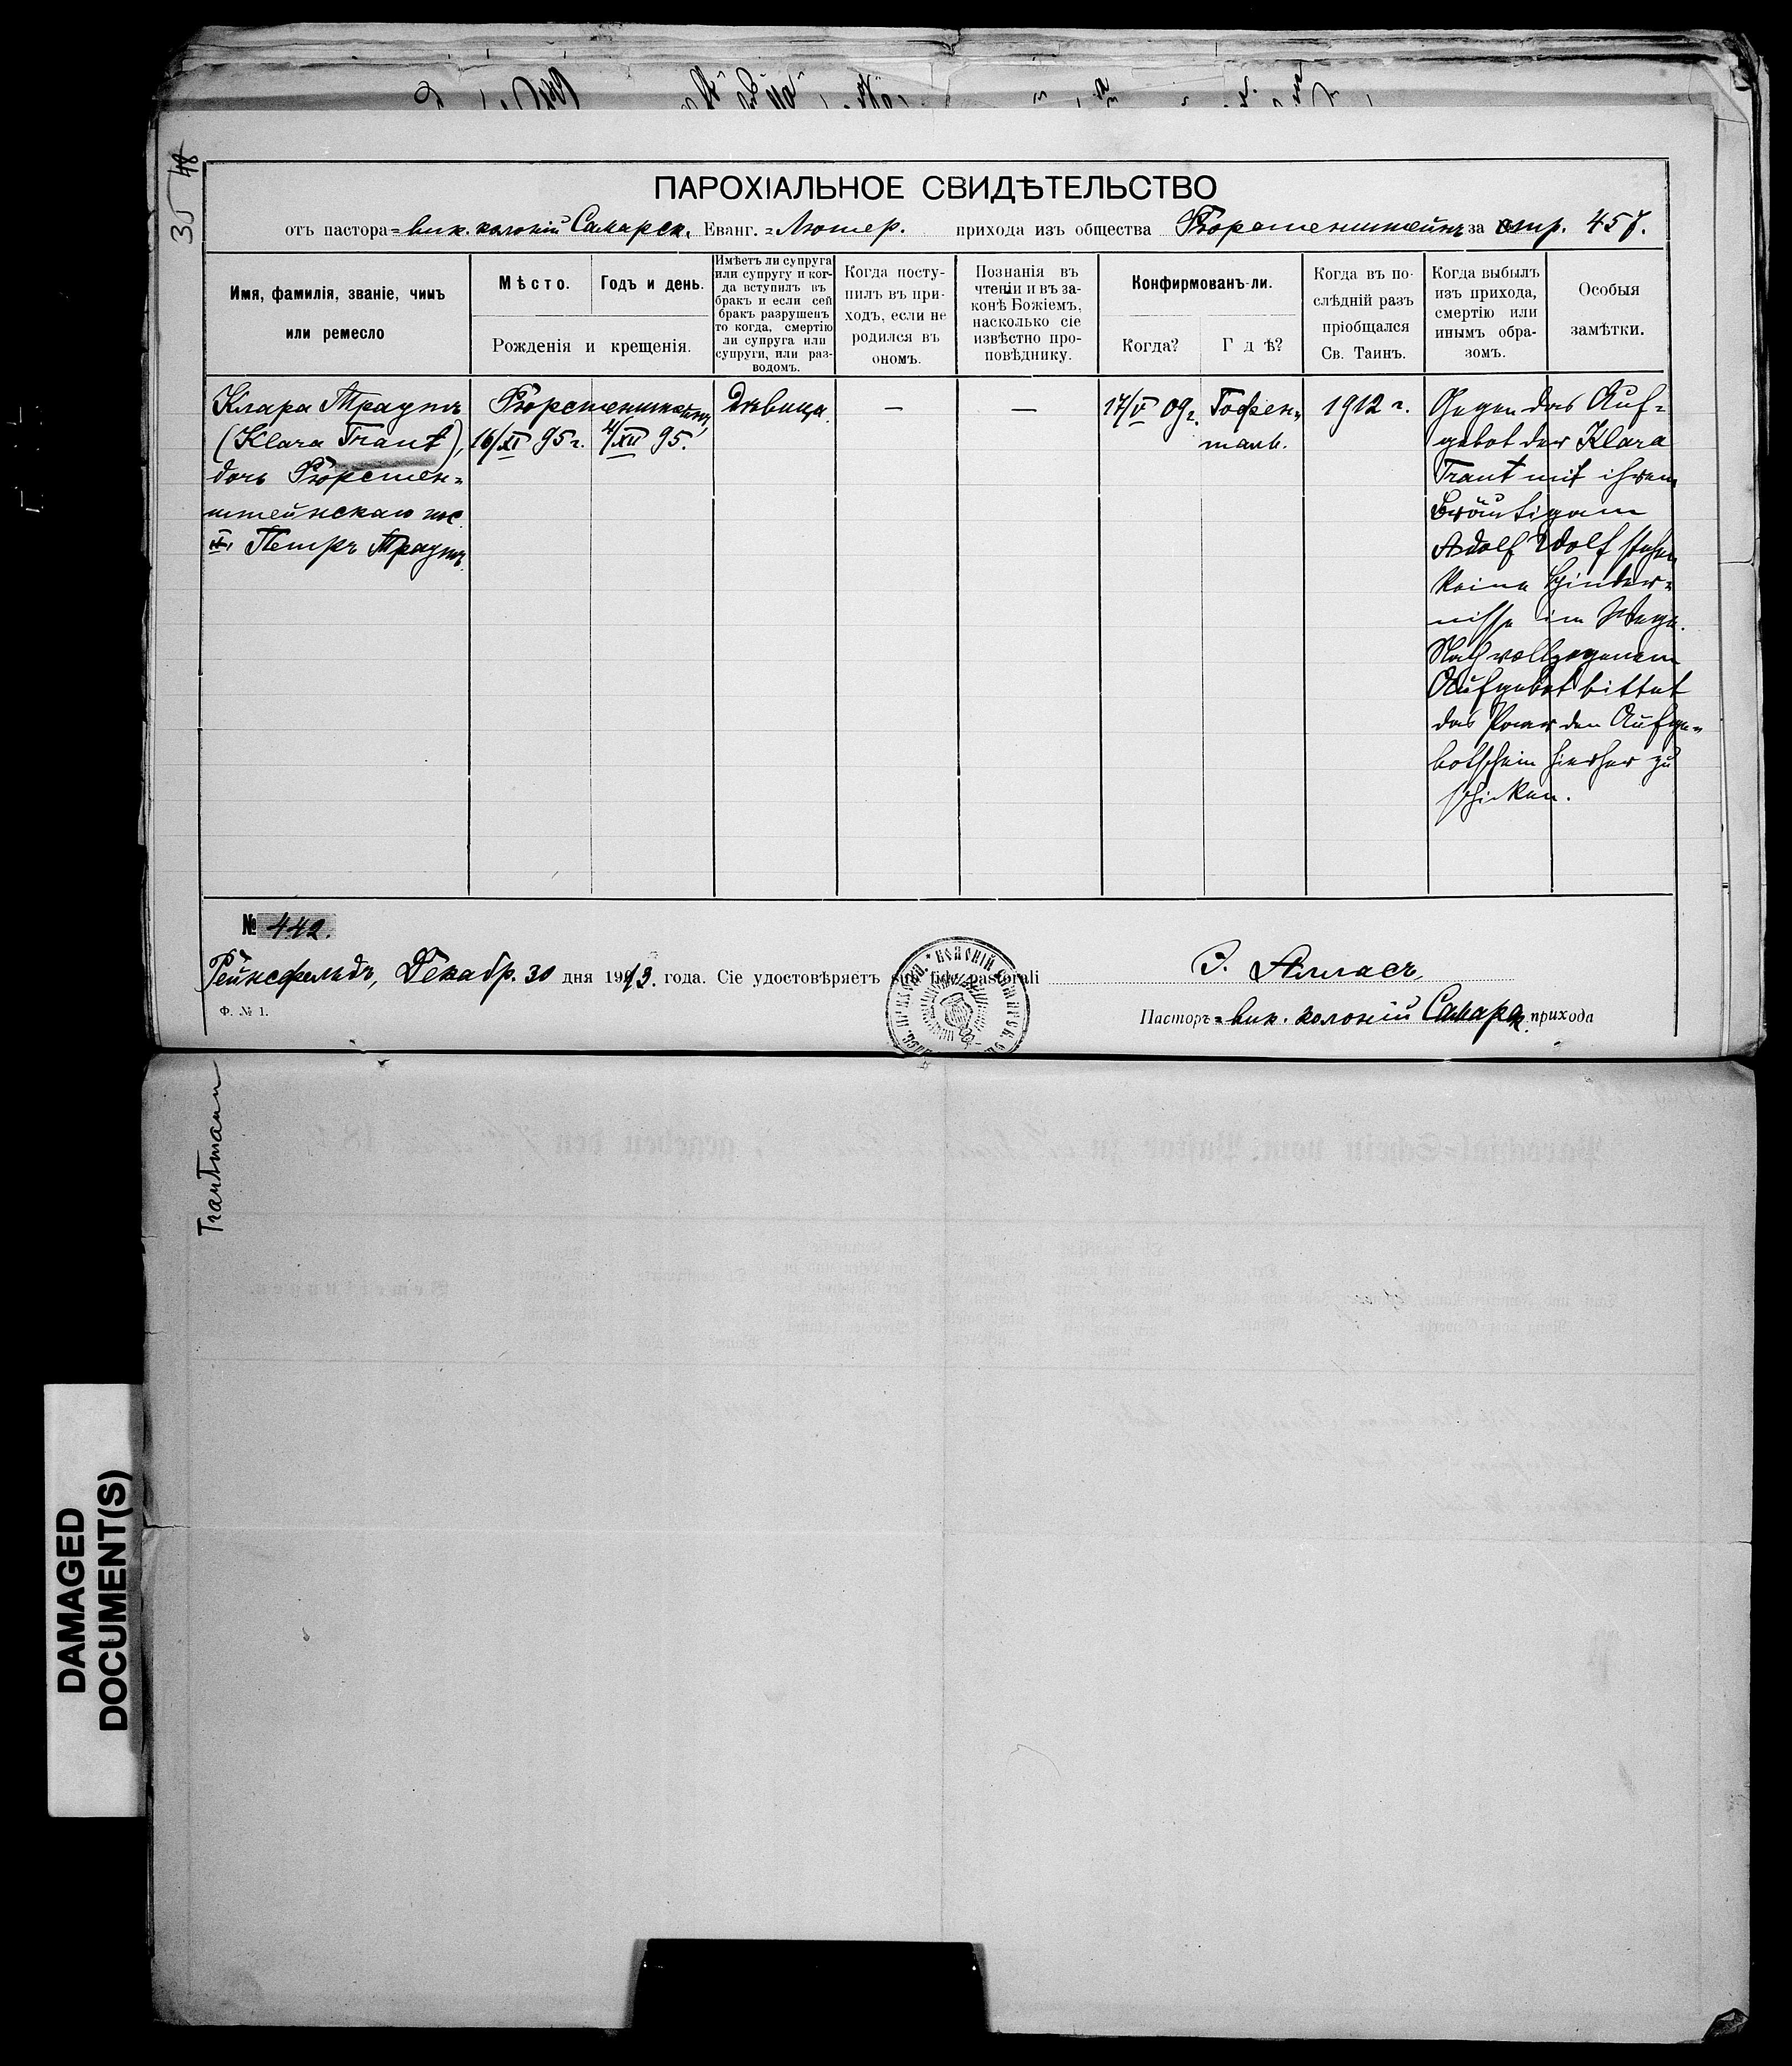 35 48
ПАРОХІАЛЬНОЕ СВИДѢТЕЛЬСТВО
отъ пастора=вик. колоній Самарск. Еванг.=Лютер. прихода изъ общества Фюрстенштейнъ за стр. 457.
Имя, фамилія, званіе, чинъ
или ремесло
Мѣсто.
Годъ и день.
Рожденія и крещенія.
Имѣетъ ли супруга
или супругу и ког-
да вступилъ въ
бракъ и если сей
бракъ разрушенъ
то когда, смертію
ли супруга или
супруги, или раз-
водомъ.
Когда посту-
пилъ въ при-
ходъ, если не
родился въ
ономъ.
Познанія въ
чтеніи и въ за-
конѣ Божіемъ,
насколько сіе
извѣстно про-
повѣднику.
Конфирмованъ-ли.
Когда?
Гдѣ?
Когда въ по-
слѣдній разъ
пріобщался
Св. Таинъ.
Когда выбылъ
изъ прихода,
смертію или
инымъ обра-
зомъ.
Особыя
замѣтки.
Клара Траутъ
(Klara Traut),
дочь Фюрстен=
штейнскаго пос.
Петръ Траутъ.
Фюрстенштейнъ,
16/XI 95 г.
4/XII 95.
Дѣвица.
—
—
17/V 09 г.
Гофен=
таль.
1912 г.
Gegen das Auf=
gebot der Klara
Traut mit ihrem
Bräutigam
Adolf Wolf stehen
keine Hinder=
nisse im Wege.
Nach vollzogenem
Aufgebot bittet
das Paar den Aufge=
botschein hierher zu
schicken.
№ 442.
Рейнсфельдъ, Декабр. 30 дня 1913. года. Сіе удостовѣряетъ sub fide pastorali
Ф. № 1.
Пасторъ=вик. колоній Самарск. прихода
Trautmann
DAMAGED
DOCUMENT(S)